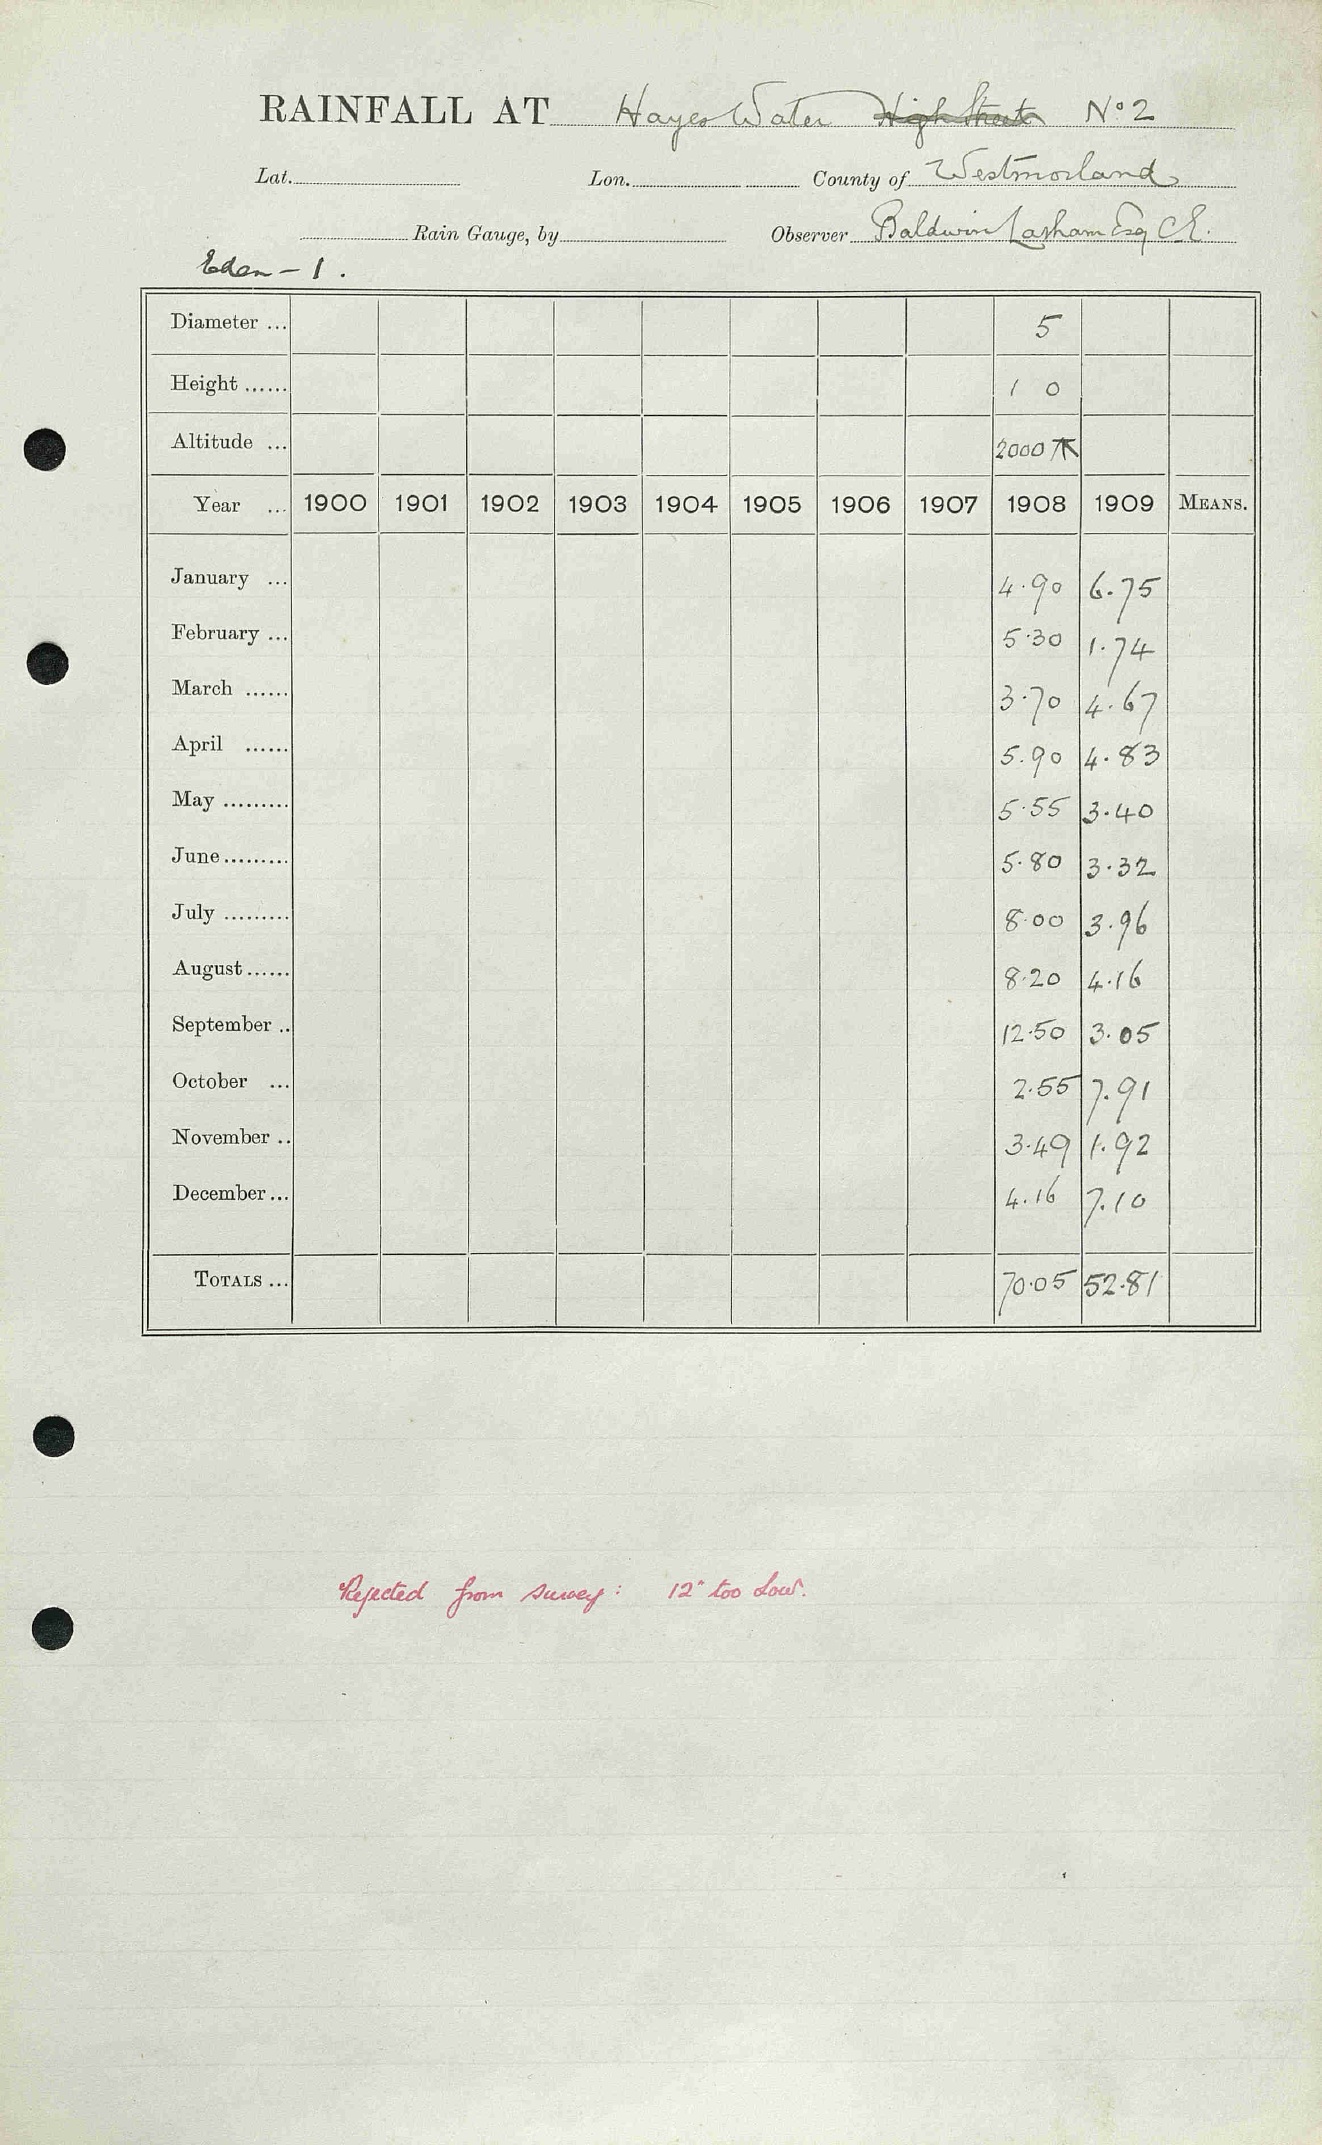 RAINFALL AT Hayes Water High Street No 2
Lat. Lon. County of Westmorland
Rain Gauge, by Observer Baldwin Latham Esq C.E.
Eden - 1.
Diameter ... 5
Height ...... 1 0
Altitude ... 2000
Year ... 1900 1901 1902 1903 1904 1905 1906 1907 1908 1909 MEANS.
January ... 4.90 6.75
February ... 5.30 1.74
March ...... 3.70 4.67
April ...... 5.90 4.83
May ......... 5.55 3.40
June......... 5.80 3.32
July ......... 8.00 3.96
August...... 8.20 4.16
September .. 12.50 3.05
October ... 2.55 7.91
November .. 3.49 1.92
December... 4.16 7.10
TOTALS ... 70.05 52.81
Rejected from survey: 12" too low.